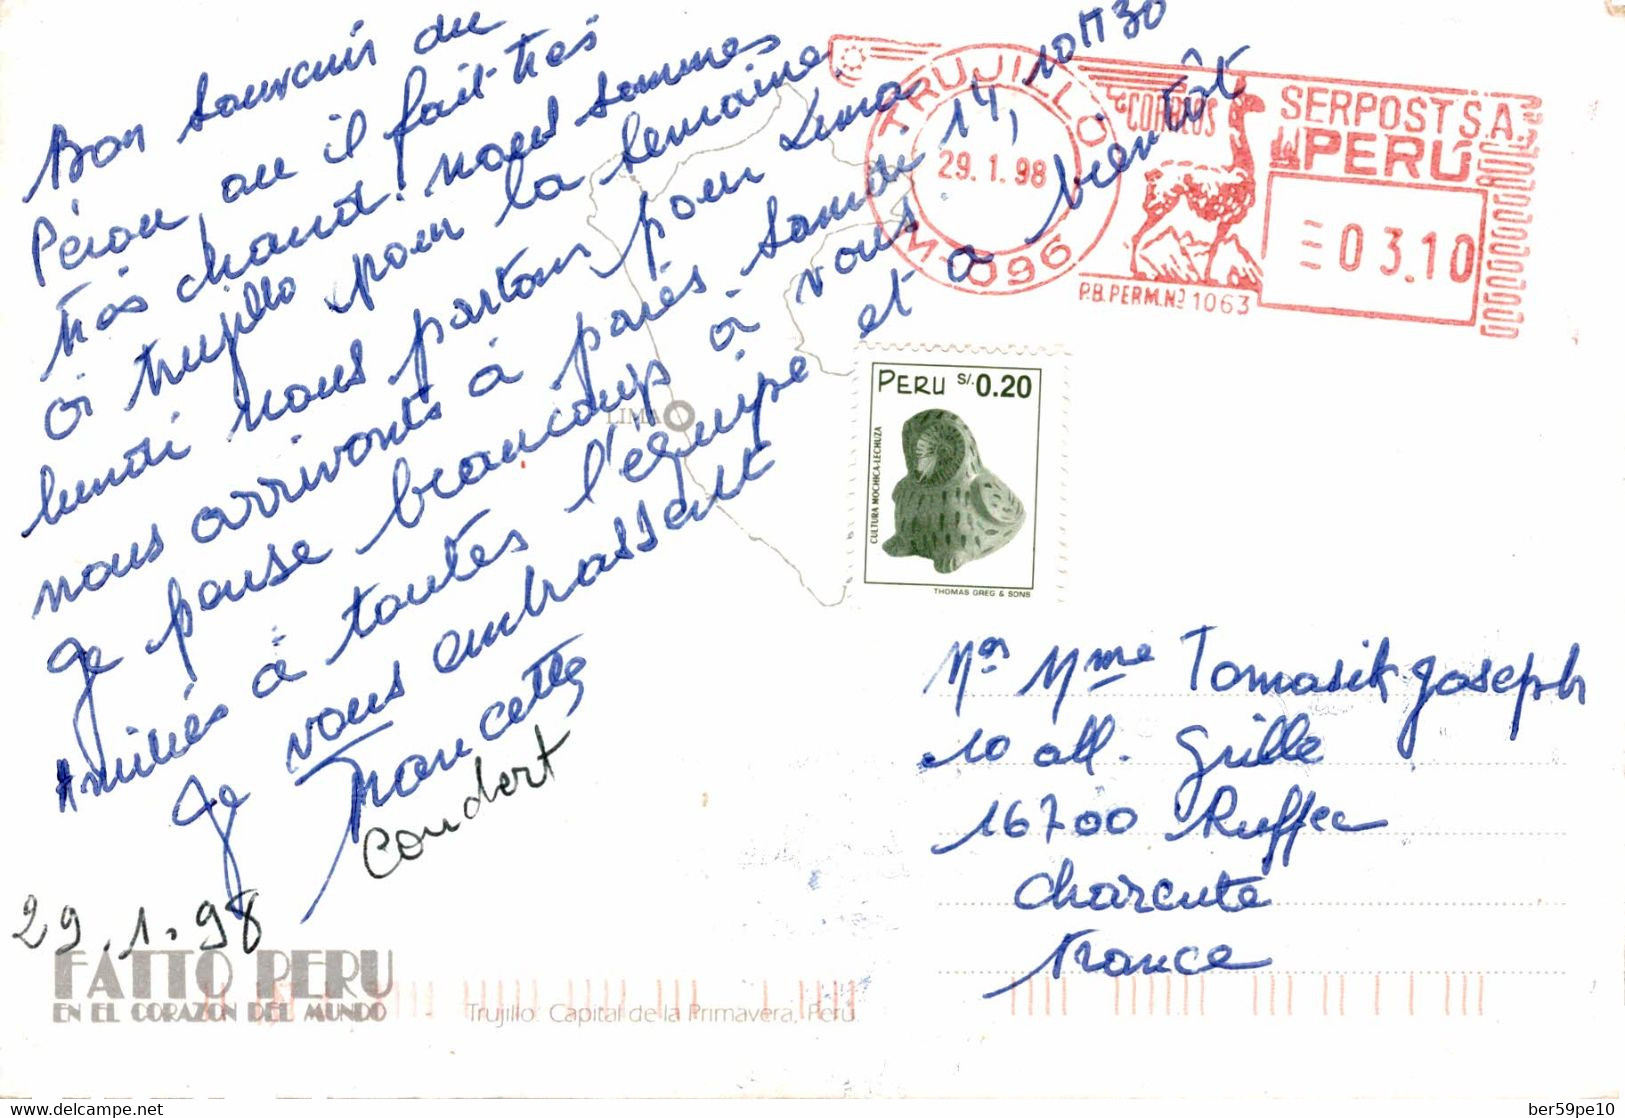 Bon souvenir du
Pérou ou il fait très
très chaud. nous sommes
à trujillo pour la semaine
lundi nous partons pour Lima
nous arrivonts à paris samdi 14, 10H30
Je pense beaucoup à vous
Amitiés à toutes l'équipe et a bientôt
Je vous embrassent
Francette
Coudert
29.1.98
FATTO PERU
EN EL CORAZON DEL MUNDO
Trujillo: Capital de la Primavera, Perú.
LIMA
TRUJILLO
29.1.98
M-096
CORREOS
SERPOST S.A.
PERU
03.10
P.B. PERM. Nº 1063
PERU S/. 0.20
CULTURA MOCHICA-LECHUZA
THOMAS GREG & SONS
Mr Mme Tomasik Joseph
10 all. Grille
16700 Ruffec
Charente
France
https://www.delcampe.net
ber59pe10